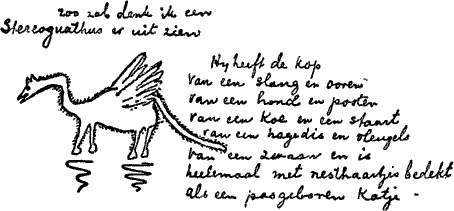 zoo zal denk ik een
Stereognathus er uit zien
Hy heeft de kop
van een slang en ooren
van een hond en pooten
van een koe en een staart
van een hagedis en vleugels
van een zwaan en is
heelemaal met nesthaartjes bedekt
als een pasgeboren katje.